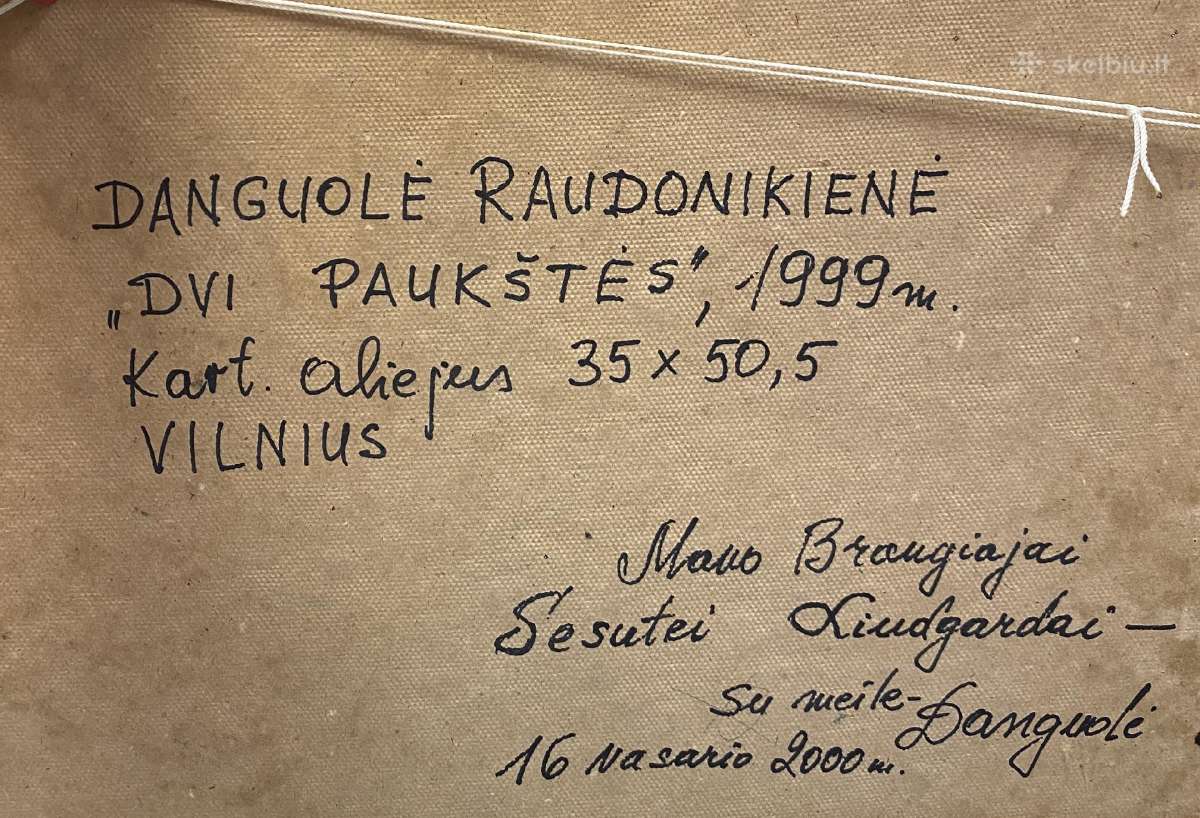 skelbiu.lt
DANGUOLĖ RAUDONIKIENĖ
„DVI PAUKŠTĖS”, 1999 m.
Kart. aliejus 35 x 50,5
VILNIUS
Mano Brangiajai
Sesutei Liudgardai —
su meile - Danguolė
16 Vasario 2000 m.